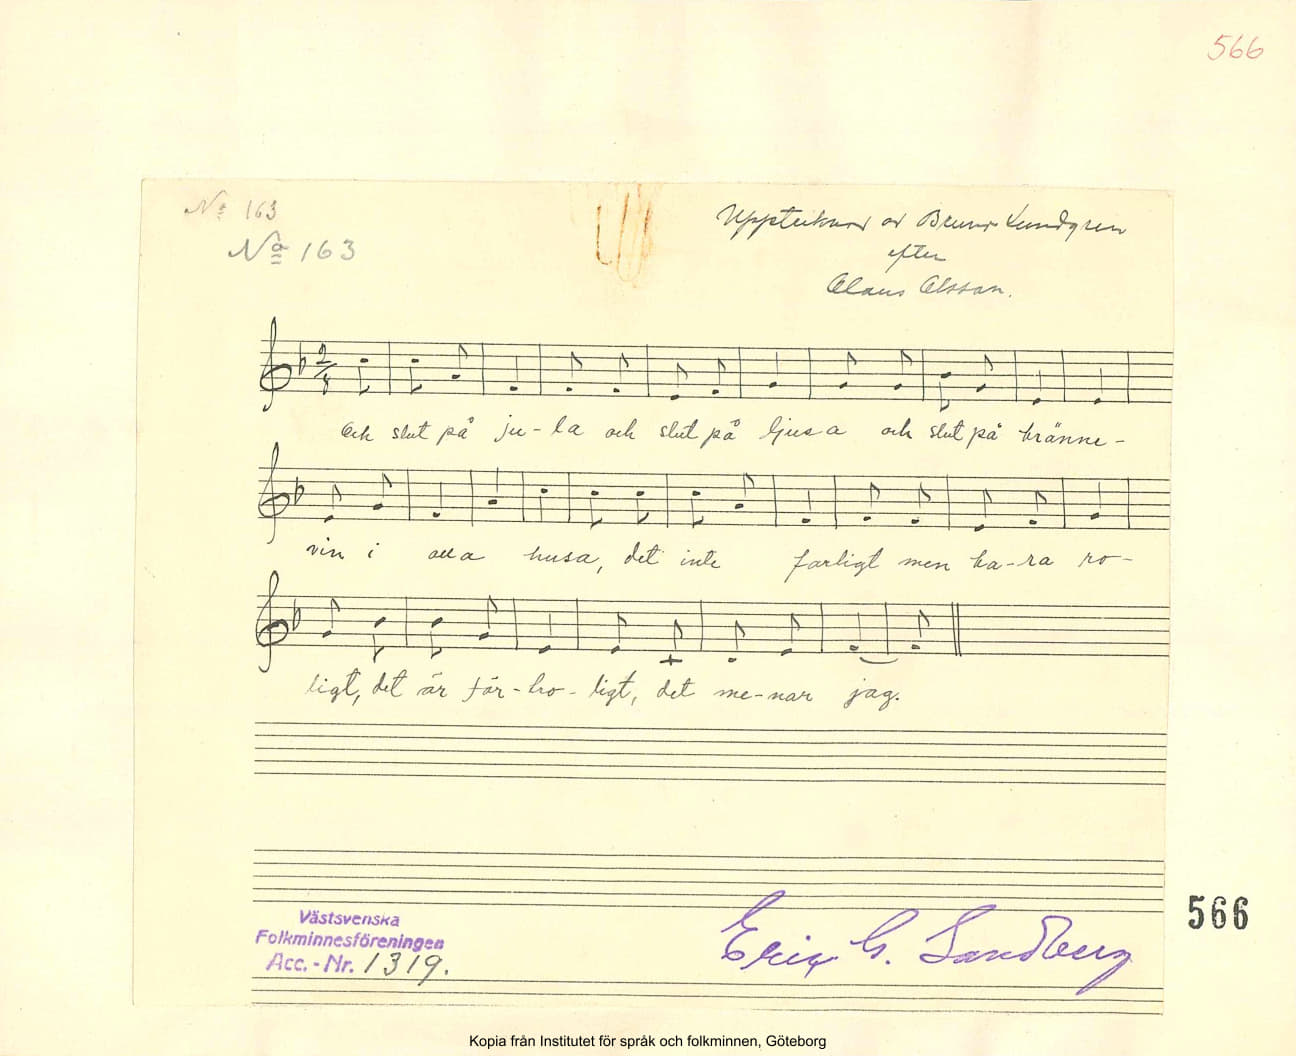 566
No 163
No 163
Upptecknad av Bruno Lundgren
efter
Claus Olsson.
2/8
Och slut på ju-la och slut på ljusa och slut på bränne-
vin i alla husa, det inte farligt men ba-ra ro-
ligt, det är får-ho-ligt, det me-nar jag.
Västsvenska
Folkminnesföreningen
Acc.-Nr. 1319.
Erik G. Sandberg
566
Kopia från Institutet för språk och folkminnen, Göteborg